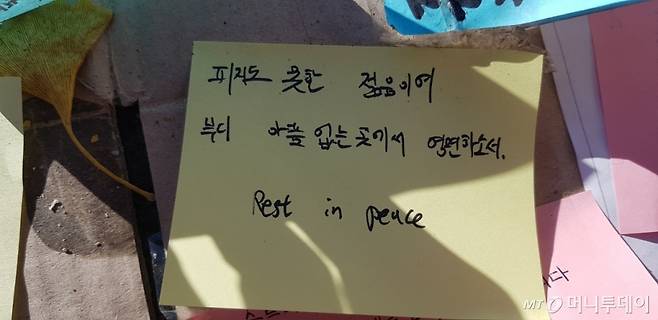 피지도 못한 젊음이여
부디 아픔 없는 곳에서 영면하소서.
Rest in peace
다
MT 머니투데이